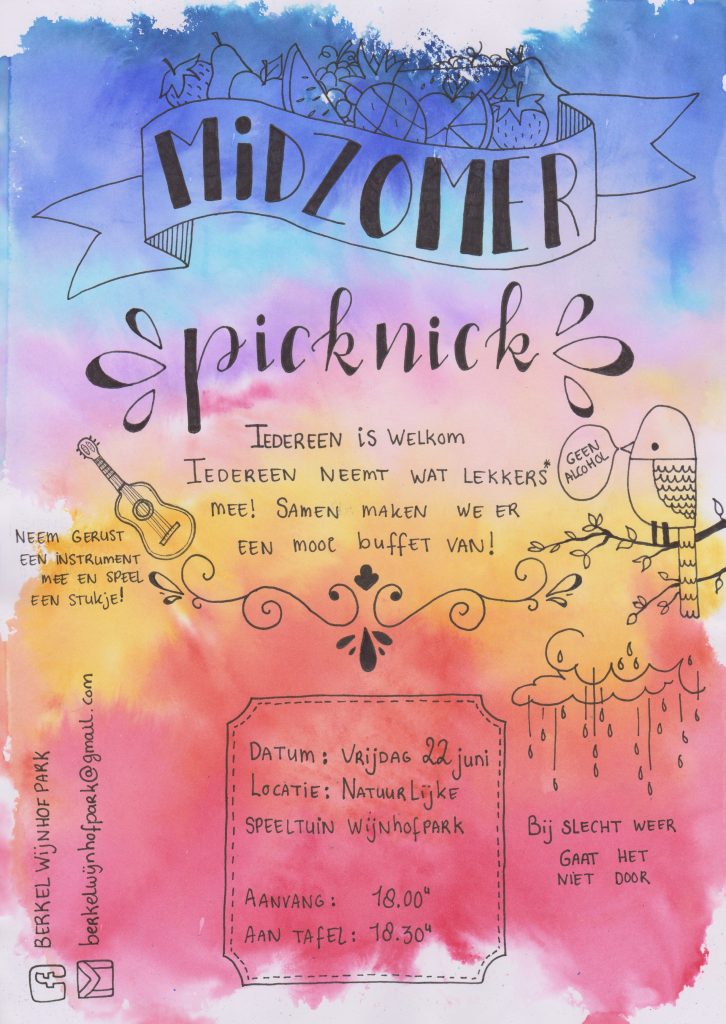 MiDZOMER
picknick
IEDEREEN iS WELKOM
IEDEREEN NEEMT WAT LEKKERS*
MEE! SAMEN MAKEN WE ER
EEN MOOI buffet VAN!
GEEN
ALCOHOL
NEEM GERUST
EEN iNSTRUMENT
MEE EN SPEEL
EEN STUKJE!
DATUM: VRIJDAG 22 juni
LOCATIE: NATUURLIJKE
SPEELTUIN WIJNHOFPARK
AANVANG: 18.00u
AAN TAFEL: 18.30u
Bij SLECHT WEER
GAAT HET
NIET DOOR
BERKEL WIJNHOFPARK
berkelwijnhofpark@gmail.com